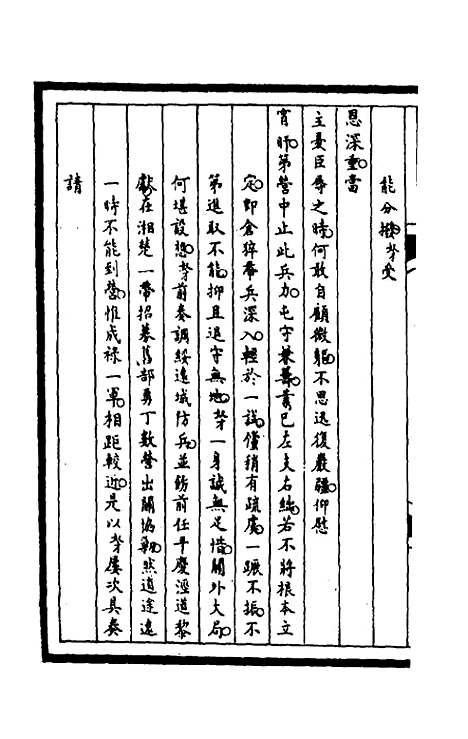 能分撥。奴才受
恩深重。當
主憂臣辱之時。何敢自顧微軀。不思迅復嚴疆。仰慰
宵旰。第營中止此兵力。屯守兼籌。業已左支右絀。若不將根本立
定。即倉猝奉兵深入。輕於一試。儻稍有疏虞。一蹶不振。不
第進取不能。抑且退守無地。奴才一身誠無足惜。關外大局。
何堪設想。奴才前奏調綏遠城防兵。並飭前任平慶涇道黎
獻。在湘楚一帶招募舊部勇丁數營出關協勦。然道途遠
一時不能到營。惟成祿一軍。相距較近。是以奴才屢次具奏
請